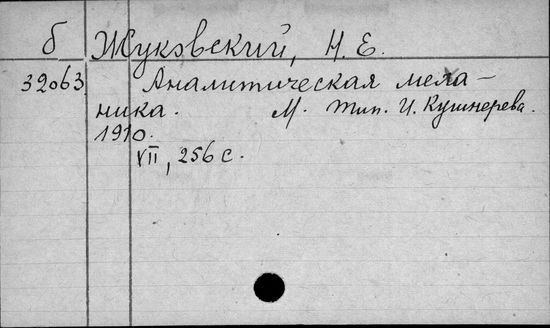 б Жуковский, Н. Е.
32063 Аналитическая меха-
ника. М. Тип. И. Кушнерева.
1910.
VII, 256 с.